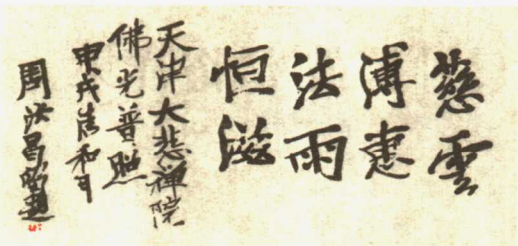 慈雲
溥惠
法雨
恒滋
天津大悲禅院
佛光普照
甲戌清和月
周汝昌敬題